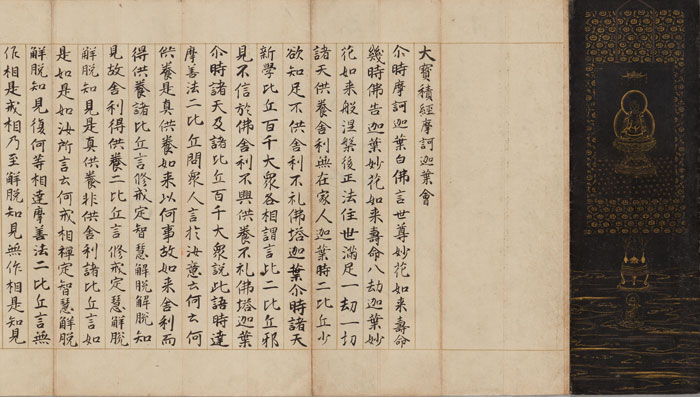 大寶積經摩訶迦葉會
尒時摩訶迦葉白佛言世尊妙花如來壽命
幾時佛告迦葉妙花如來壽命八劫迦葉妙
花如來般涅槃後正法住世滿足一劫一切
諸天供養舍利無在家人迦葉時二比丘少
欲知足不供舍利不礼佛塔迦葉尒時諸天
新學比丘百千大衆各相謂言此二比丘邪
見不信於佛舍利不興供養不礼佛塔迦葉
尒時諸天及諸比丘百千大衆說此語時達
摩善法二比丘聞衆人言於汝意云何云何
供養是真供養如來以何事故如來舍利而
得供養諸比丘言修戒定智慧解脫解脫知
見故舍利得供養二比丘言修戒定慧解脫
解脫知見是真供養非供舍利諸比丘言如
是如是如汝所言云何戒相禪定智慧解脫
解脫知見復何等相達摩善法二比丘言無
作相是戒相乃至解脫知見無作相是知見